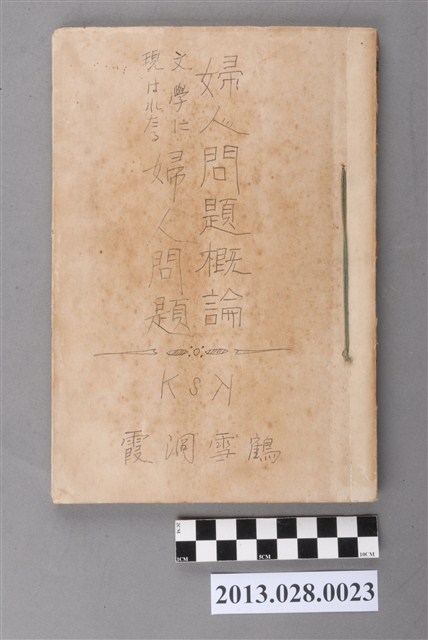 婦人問題概論
文學に
現はれたる
婦人問題
KSK
鶴雪洞霞
1CM
5CM
10CM
2013.028.0023